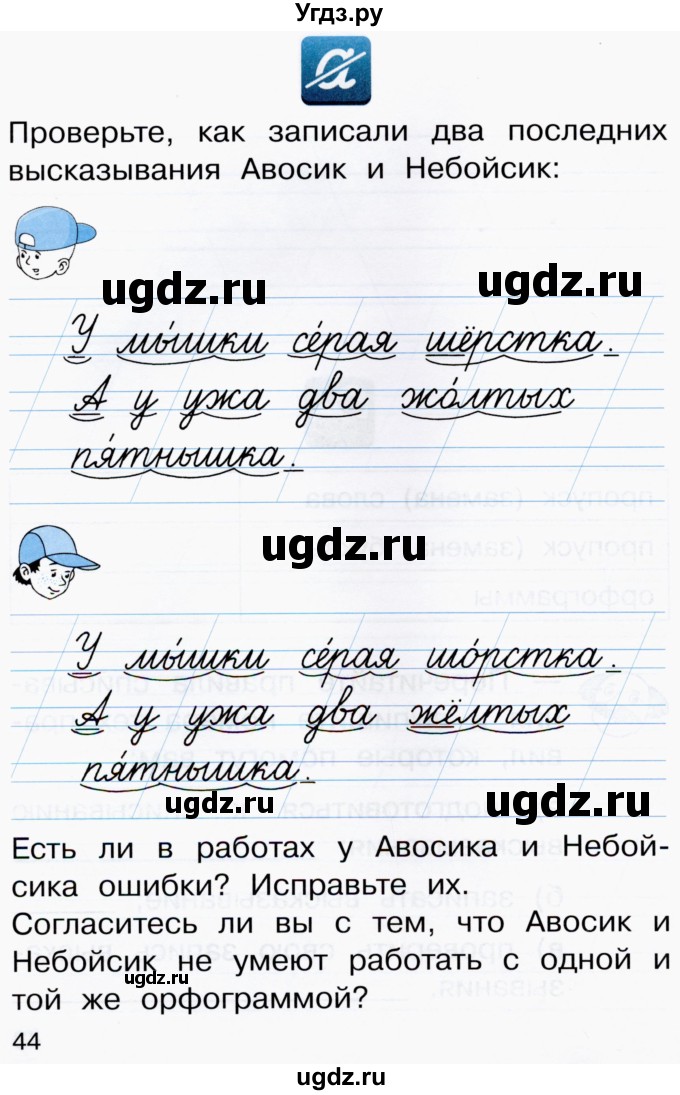 Угдз.ру
а
Проверьте, как записали два последних
высказывания Авосик и Небойсик:
ugdz.ru ugdz.ru
У мы́шки се́рая шёрстка.
А у ужа два жо́лтых
пя́тнышка.
пропуск (замена) слова
ugdz.ru
пропуск (замена)
орфограммы
У мы́шки се́рая шо́рстка.
А у ужа два жёлтых
пя́тнышка.
ugdz.ru ugdz.ru
Есть ли в работах у Авосика и Небой-
сика ошибки? Исправьте их.
Согласитесь ли вы с тем, что Авосик и
Небойсик не умеют работать с одной и
ugdz.ru
той же орфограммой?
44
ugdz.ru